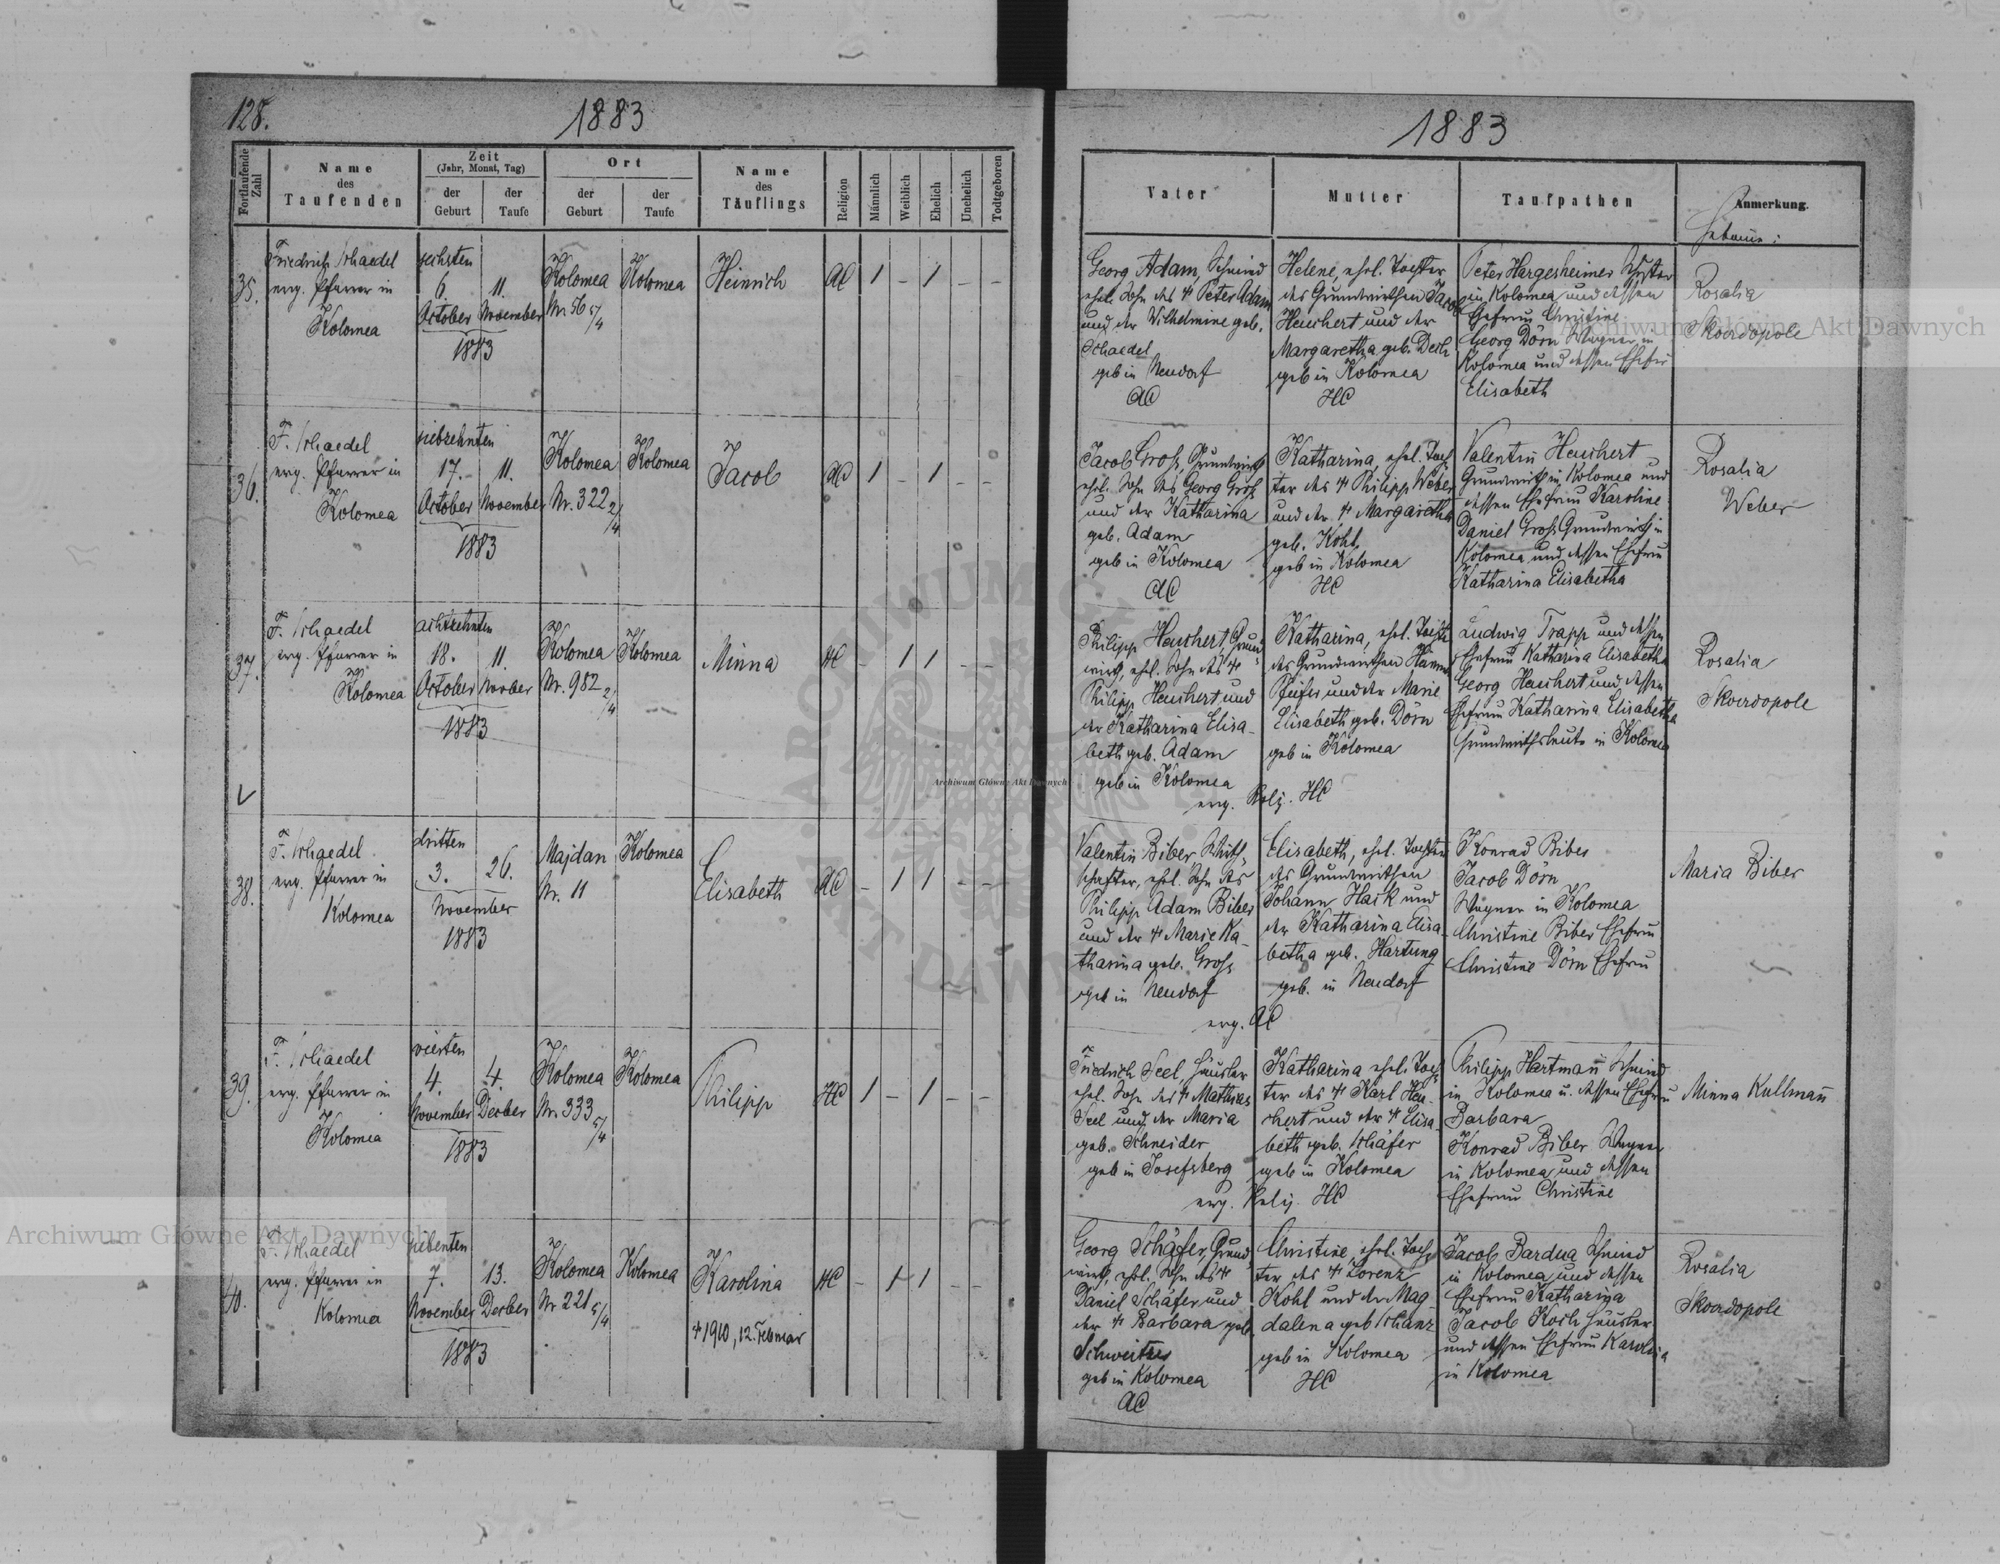 128.
1883
1883
Fortlaufende Zahl
Name
des
Taufenden
Zeit
(Jahr, Monat, Tag)
der
Geburt
der
Taufe
Ort
der
Geburt
der
Taufe
Name
des
Täuflings
Religion
Männlich
Weiblich
Ehelich
Unehelich
Todtgeboren
Vater
Mutter
Taufpathen
Anmerkung.
Hebamme:
35.
Friedrich Schaedel
evg. Pfarrer in
Kolomea
sechsten
6.
October
11.
November
1883
Kolomea
Nr. 56 5/4
Kolomea
Heinrich
AC
1
–
1
–
–
Georg Adam, Schmied
ehel. Sohn des † Peter Adam
und der Wilhelmine geb.
Schaedel
geb in Neudorf
AC
Helene, ehel. Tochter
des Grundwirthen Jacob
Heuchert und der
Margaretha geb. Desch
geb in Kolomea
HC
Peter Hargesheimer
in Kolomea und dessen
Ehefrau Christine
Georg Dörn Wagner in
Kolomea und dessen Ehefrau
Elisabeth
Rosalia
Skordopole
36.
F. Schaedel
evg. Pfarrer in
Kolomea
siebzehnten
17.
October
11.
November
1883
Kolomea
Nr. 322 2/4
Kolomea
Jacob
AC
1
–
1
–
–
Jacob Groß, Grundwirth
ehel. Sohn des Georg Groß
und der Katharina
geb. Adam
geb in Kolomea
AC
Katharina, ehel. Toch-
ter des † Philipp Weber
und der † Margaretha
geb. Kohl,
geb in Kolomea
HC
Valentin Heuchert
Grundwirth in Kolomea und
dessen Ehefrau Karoline
Daniel Groß Grundwirth in
Kolomea und dessen Ehefrau
Katharina Elisabetha
Rosalia
Weber
37.
F. Schaedel
evg. Pfarrer in
Kolomea
achtzehnten
18.
October
11.
Novber
1883
Kolomea
Nr. 982 2/4
Kolomea
Minna
HC
–
1
1
–
–
Philipp Heuchert, Grund-
wirth, ehel. Sohn des †
Philipp Heuchert und
der Katharina Elisa-
beth geb. Adam
geb in Kolomea
evg. Relig. HC
Katharina, ehel. Tochter
des Grundwirthen
Pfeifer und der Marie
Elisabeth geb. Dörn
geb in Kolomea
Ludwig Trapp und dessen
Ehefrau Katharina Elisabetha
Georg Heuchert und dessen
Ehefrau Katharina Elisabetha
Grundwirthsleute in Kolomea
Rosalia
Skordopole
38.
F. Schaedel
evg. Pfarrer in
Kolomea
dritten
3.
26.
November
1883
Majdan
Nr. 11
Kolomea
Elisabeth
AC
–
1
1
–
–
Valentin Biber, Wirth-
schafter, ehel. Sohn des
Philipp Adam Biber
und der † Marie Ka-
tharina geb. Groß
geb in Neudorf
evg. AC
Elisabeth, ehel. Tochter
des Grundwirthen
Johann Haik und
der Katharina Elisa-
betha geb. Hartung
geb. in Neudorf
Konrad Biber
Jacob Dörn
Wagner in Kolomea
Christine Biber Ehefrau
Christine Dörn Ehefrau
Maria Biber
39.
F. Schaedel
evg. Pfarrer in
Kolomea
vierten
4.
November
4.
Decber
1883
Kolomea
Nr. 333 5/4
Kolomea
Philipp
HC
1
–
1
–
–
Friedrich Seel Häusler
ehel. Sohn des † Mathias
Seel und der Maria
geb. Schneider
geb in Josefsberg
evg. Relig. HC
Katharina ehel. Toch-
ter des † Karl Heu-
chert und der † Elisa-
beth geb. Schäfer
geb in Kolomea
Philipp Hartmañ Schmied
in Kolomea u. dessen Ehefrau
Barbara
Konrad Biber Wagner
in Kolomea und dessen
Ehefrau Christine
Minna Kullmañ
40.
F. Schaedel
evg. Pfarrer in
Kolomea
siebenten
7.
November
13.
Decber
1883
Kolomea
Nr 221 5/4
Kolomea
Karolina
† 1910, 12. Februar
HC
–
1
1
–
–
Georg Schäfer, Grund-
wirth, ehel. Sohn des †
Daniel Schäfer und
der † Barbara geb.
Schweitzer
geb in Kolomea
AC
Christine, ehel. Toch-
ter des † Lorenz
Kohl und der Mag-
dalena geb Schanz
geb in Kolomea
HC
Jacob Bardua Schmied
in Kolomea und dessen
Ehefrau Katharina
Jacob Koch Häusler
und dessen Ehefrau Karolina
in Kolomea
Rosalia
Skordopole
Archiwum Główne Akt Dawnych
Archiwum Główne Akt Dawnych
Archiwum Główne Akt Dawnych